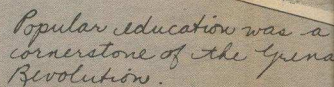 Popular education was a
cornerstone of the Grena
Revolution.